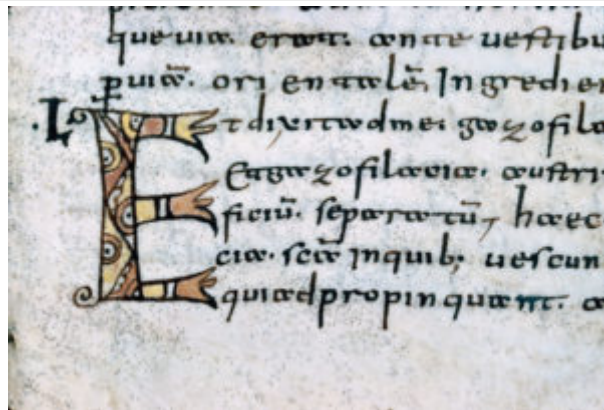 que uia. erat. ante uestibu
ꝑ uiā. ori entalē, Ingredie
Et dixit ad me. gazofila
Et gazofilacia. austri
ficiū. separatū, haec
cia. scā inquib; uescun
qui ad propinquant.